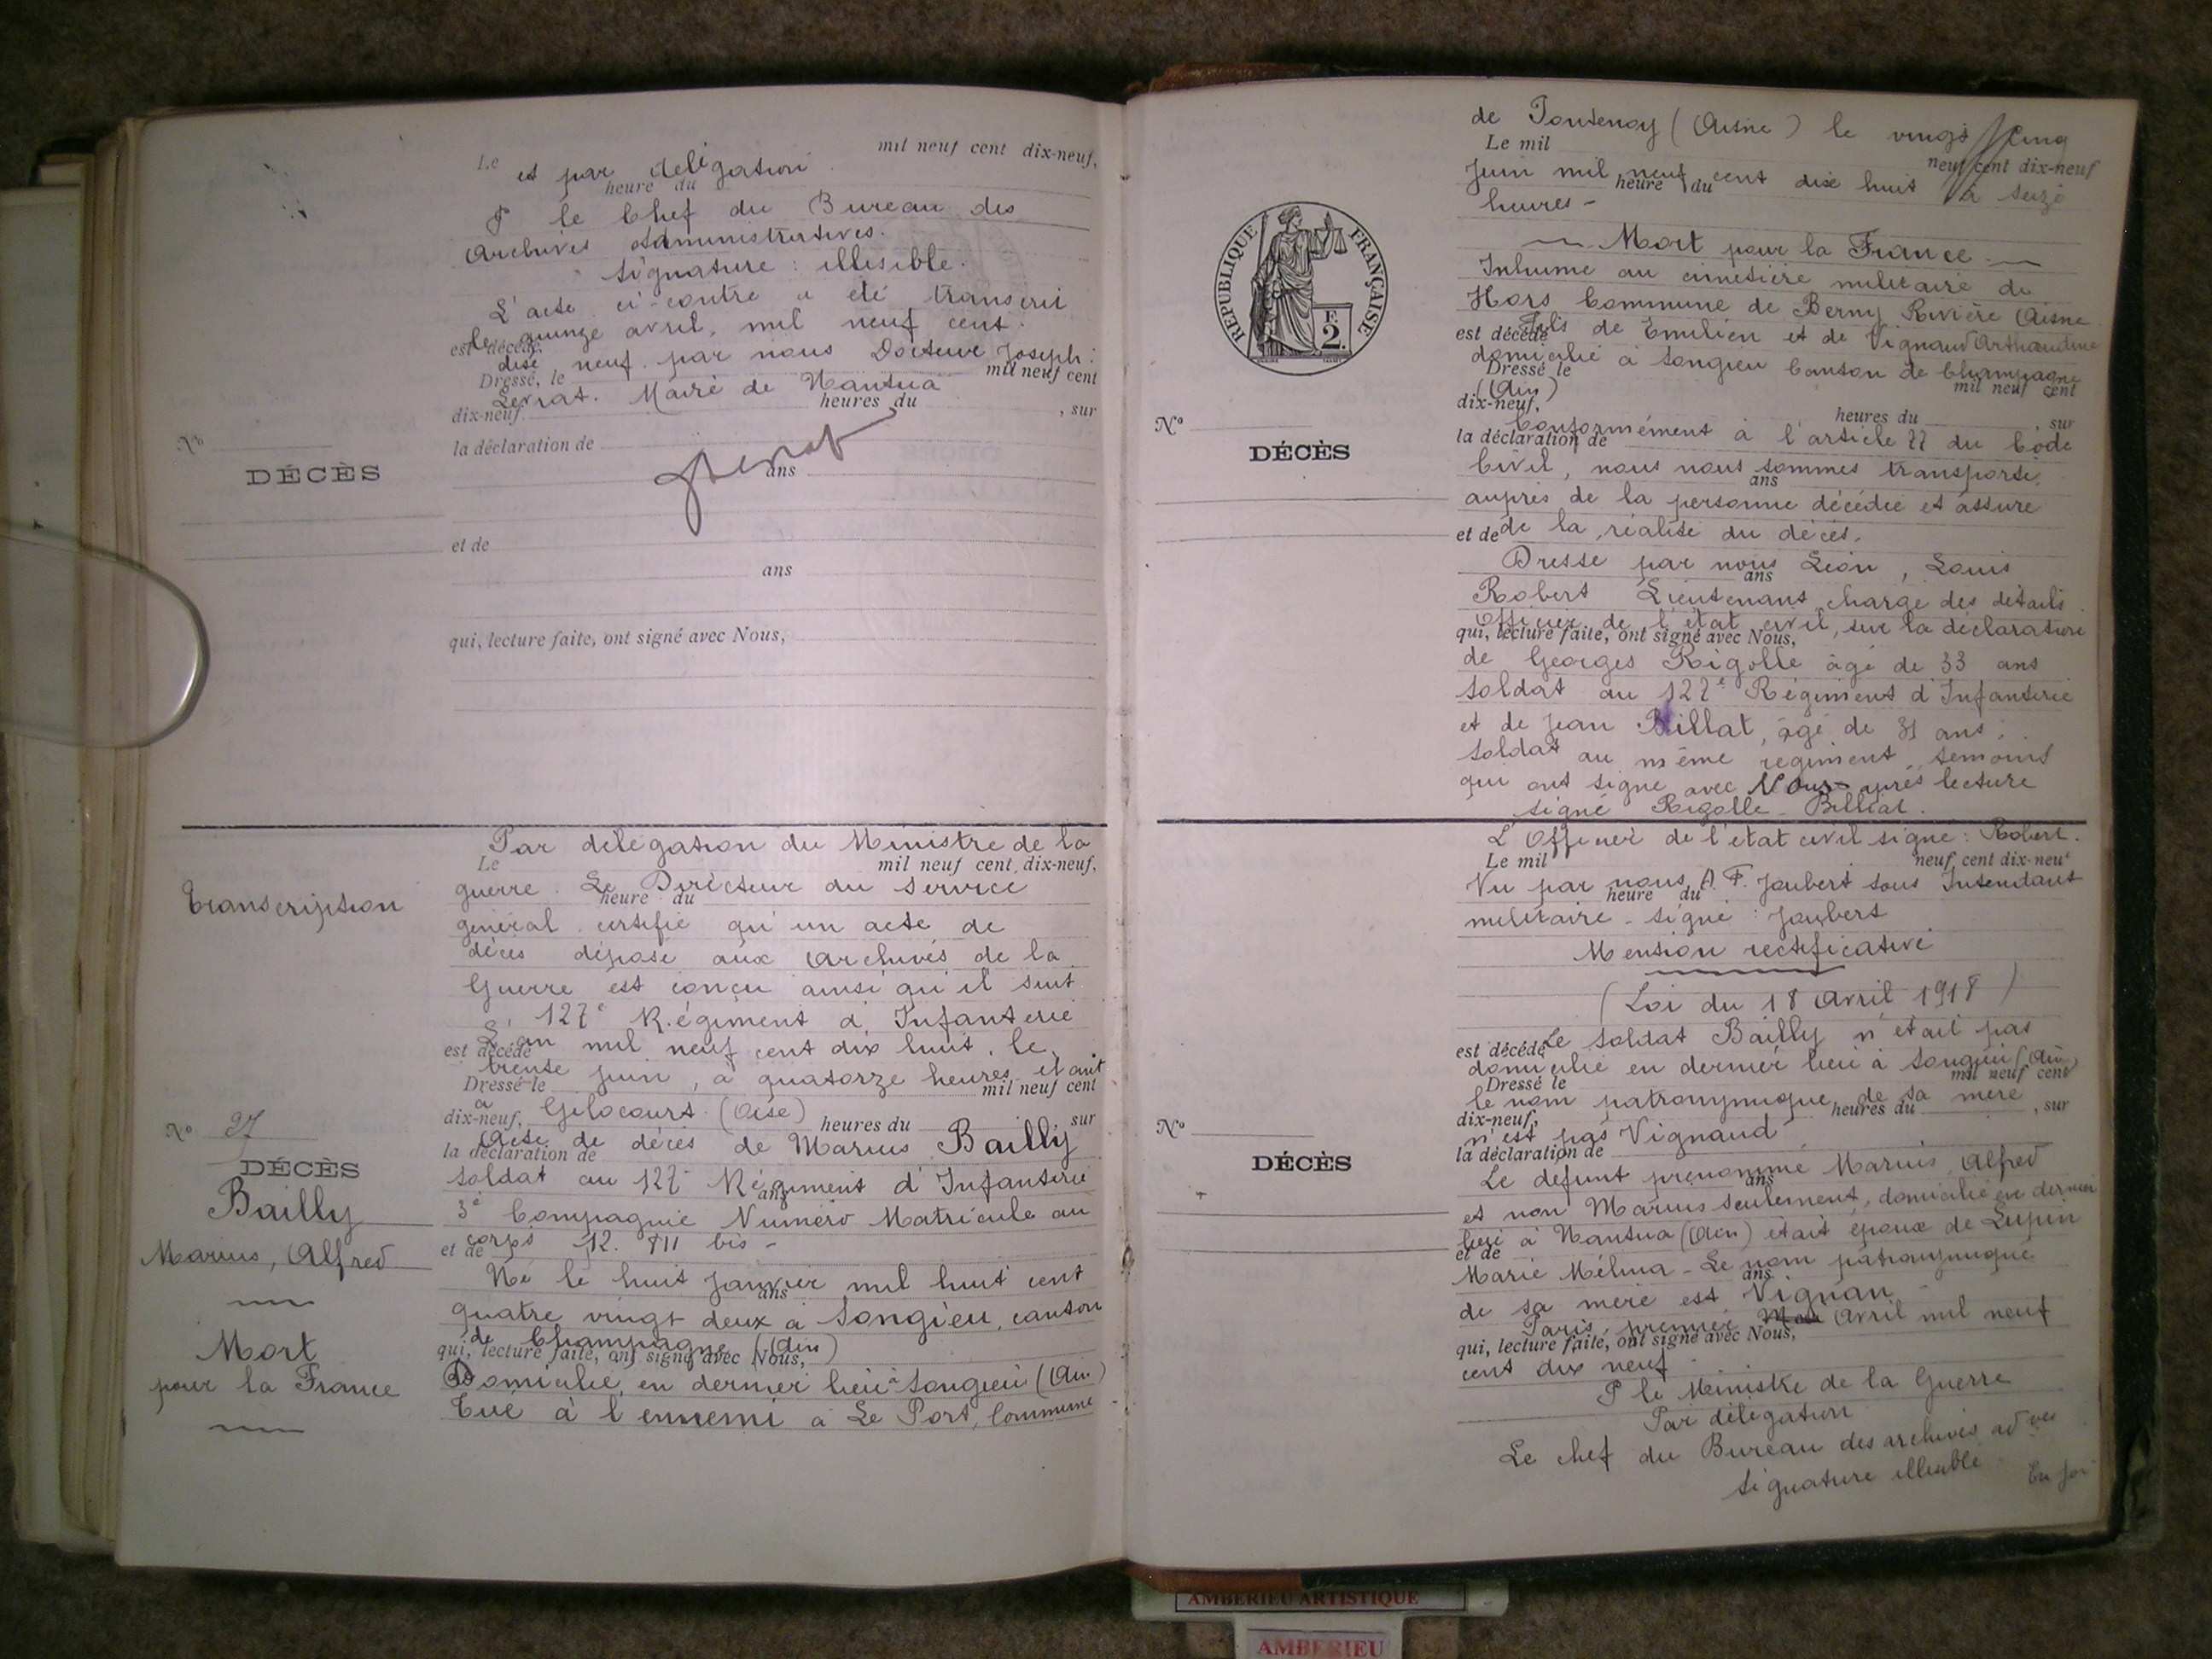 Le mil neuf cent dix-neuf,
et par deligation
heure du
P le Chef du Bureau des
Archives Administratives.
Signature : illisible.
L'acte ci-contre a été transcrit
le quinze avril, mil neuf cent
est décédé
dise neuf par nous Docteur Joseph
Dressé, le mil neuf cent
Maire de Nantua
dix-neuf, heures du , sur
la déclaration de
ans
et de
ans
qui, lecture faite, ont signé avec Nous,
No
DÉCÈS
Transcription
No 97
DÉCÈS
Bailly
Marius, Alfred
Mort
pour la France
Par délégation du Ministre de la
Le mil neuf cent dix-neuf,
guerre. Le Directeur du Service
heure du
général certifie qu'un acte de
décès déposé aux Archives de la
Guerre est conçu ainsi qu'il suit
127e Régiment d'Infanterie
L'an mil neuf cent dix huit, le
est décédé
trente juin, à quatorze heures étant
Dressé le mil neuf cent
à Gilocourt (Oise)
dix-neuf, heures du , sur
Acte de décès de Marius Bailly
la déclaration de
soldat au 127e Régiment d'Infanterie
ans
3e Compagnie Numéro Matricule au
corps 12. 711 bis -
et de
Né le huit janvier mil huit cent
ans
quatre vingt deux à Songieu, canton
de Champagne (Ain)
qui, lecture faite, ont signé avec Nous,
Domicilié en dernier lieu à Songieu (Ain)
Tué à l'ennemi à Le Port, Commune
RÉPUBLIQUE FRANÇAISE
F.
2.
No
DÉCÈS
No
DÉCÈS
de Fontenoy (Aisne) le vingt cinq
Le mil neuf cent dix-neuf
Juin mil neuf cent dix huit à seize
heure du
heures -
Mort pour la France
Inhumé au cimetière militaire de
Hors Commune de Berny Rivière Aisne
fils de Emilien et de Vignaud
est décédé
domicilié à Songieu Canton de Champagne
Dressé le mil neuf cent
(Ain)
dix-neuf, heures du , sur
Conformément à l'article 77 du Code
la déclaration de
Civil, nous nous sommes transporté
ans
auprès de la personne décédée et assuré
de la réalité du décès.
et de
Dressé par nous Léon, Louis
ans
Robert Lieutenant chargé des détails
Officier de l'état civil, sur la déclaration
qui, lecture faite, ont signé avec Nous,
de Georges Rigolle âgé de 33 ans
soldat au 127e Régiment d'Infanterie
et de Jean Billat, âgé de 31 ans,
soldat au même régiment, témoins
qui ont signé avec Nous après lecture
signé Rigolle Billiat.
L'Officier de l'état civil signé : Robert.
Le mil neuf cent dix-neuf
Vu par nous A. F. Joubert sous Intendant
heure du
militaire - signé : Joubert
Mention rectificative
(Loi du 18 Avril 1918)
Le soldat Bailly n'était pas
est décédé
domicilié en dernier lieu à Songieu (Ain)
Dressé le mil neuf cent
le nom patronymique de sa mère
dix-neuf, heures du , sur
n'est pas Vignaud
la déclaration de
Le défunt prénommé Marius Alfred
ans
et non Marius seulement, domicilié en dernier
lieu à Nantua (Ain) était époux de Lupin
et de
Marie Mélina - Le nom patronymique
ans
de sa mère est Vignan
Paris, premier Avril mil neuf
qui, lecture faite, ont signé avec Nous,
cent dix neuf
P le Ministre de la Guerre
Par délégation
Le chef du Bureau des archives adves
signature illisible
AMBERIEU ARTISTIQUE
AMBERIEU